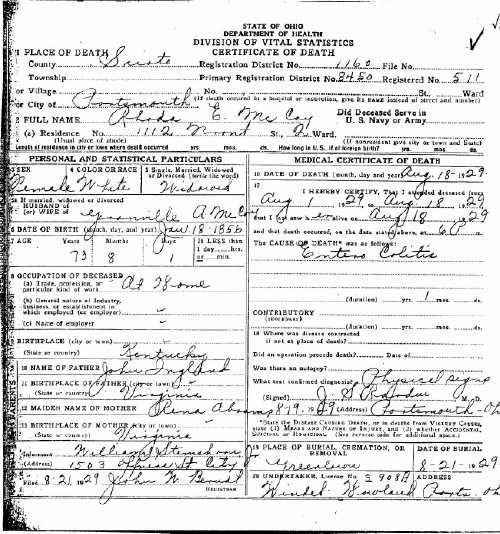 STATE OF OHIO
DEPARTMENT OF HEALTH
DIVISION OF VITAL STATISTICS
CERTIFICATE OF DEATH
1 PLACE OF DEATH
County Scioto Registration District No. 1160 File No.
Township Primary Registration District No. 8480 Registered No. 511
or Village No. St., Ward
or City of Portsmouth (If death occurred in a hospital or institution, give its NAME instead of street and number)
2 FULL NAME Rhoda E. McCoy Did Deceased Serve in U. S. Navy or Army
(a) Residence No. 1112 Front St., 2 Ward.
(Usual place of abode) (If nonresident give city or town and State)
Length of residence in city or town where death occurred yrs. mos. ds. How long in U. S., if of foreign birth? yrs. mos. ds.
PERSONAL AND STATISTICAL PARTICULARS
3 SEX 4 COLOR OR RACE 5 Single, Married, Widowed or Divorced (write the word)
Female White Widowed
5a If married, widowed or divorced
HUSBAND of
(or) WIFE of Granville A McCoy
6 DATE OF BIRTH (month, day, and year) Jan 18-1856
7 AGE Years Months Days If LESS than 1 day, hrs. or min.
73 8 1
8 OCCUPATION OF DECEASED
(a) Trade, profession, or particular kind of work At Home
(b) General nature of Industry, business, or establishment in which employed (or employer)
(c) Name of employer
9 BIRTHPLACE (city or town)
(State or country) Kentucky
10 NAME OF FATHER John England
11 BIRTHPLACE OF FATHER (city or town)
(State or country) Virginia
12 MAIDEN NAME OF MOTHER Rena Abrams
13 BIRTHPLACE OF MOTHER (city or town)
(State or country) Virginia
Informant William
(Address) 1503 City
Filed 8-21-1929 John W.
REGISTRAR
MEDICAL CERTIFICATE OF DEATH
16 DATE OF DEATH (month, day and year) Aug-18-1929
17 I HEREBY CERTIFY, That I attended deceased from
Aug 1, 1929 to Aug-18, 1929
that I last saw her alive on Aug 18, 1929
and that death occurred, on the date stated above, at 6 P m.
The CAUSE OF DEATH* was as follows:
Entero Colitis
(duration) yrs. 1 mos. ds.
CONTRIBUTORY
(SECONDARY)
(duration) yrs. mos. ds.
18 Where was disease contracted
if not at place of death?
Did an operation precede death? Date of
Was there an autopsy?
What test confirmed diagnosis? Physical signs
(Signed) J. S. M.D.
8-19-1929 (Address) Portsmouth-Oh
*State the DISEASE CAUSING DEATH, or in deaths from VIOLENT CAUSES, state (1) MEANS AND NATURE OF INJURY, and (2) whether ACCIDENTAL, SUICIDAL or HOMICIDAL. (See reverse side for additional space.)
19 PLACE OF BURIAL, CREMATION, OR REMOVAL DATE OF BURIAL
Greenlawn 8-21-1929
20 UNDERTAKER, License No. 2908A ADDRESS
Ports. Oh